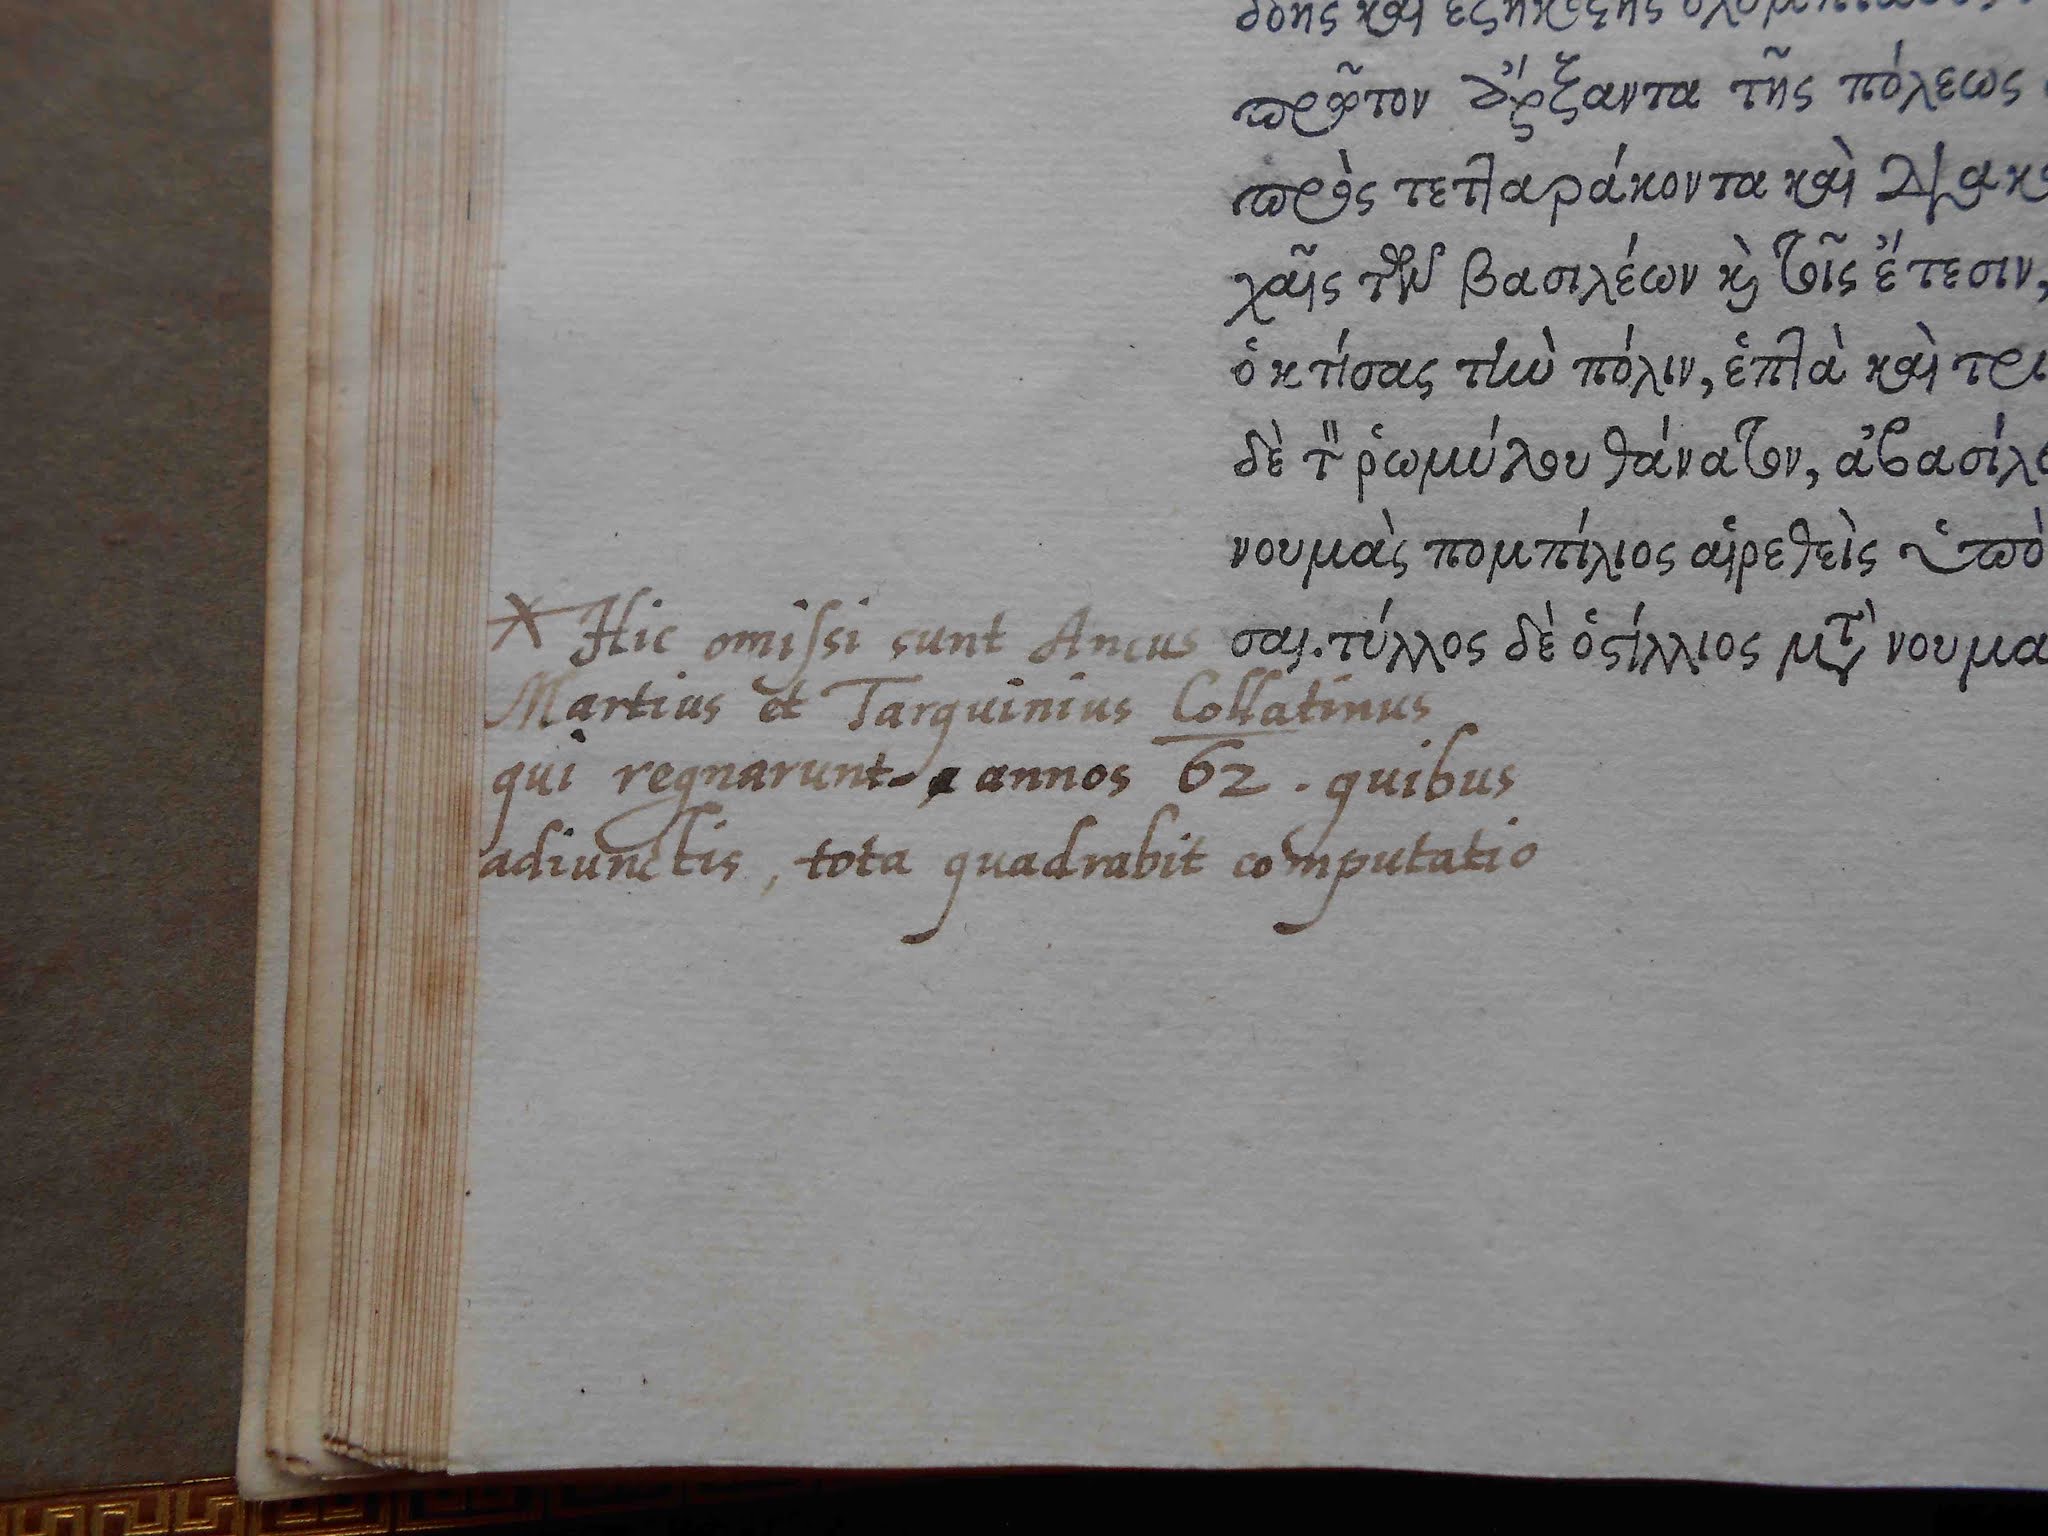 πρῶτον ἄρξαντα τῆς πόλεως
πρὸς τετταράκοντα καὶ
χαῖς τῶν βασιλέων καὶ τοῖς ἔτεσιν,
ὁ κτίσας τὴν πόλιν, ἑπτὰ καὶ τρι
δὲ τὸν ῥωμύλου θάνατον, ἀβασίλε
νουμὰς πομπίλιος αἱρεθεὶς ὑπὸ
σαι. τύλλος δὲ ὁστίλλιος μετὰ νουμα
* Hic omissi sunt Ancus
Martius et Tarquinius Collatinus
qui regnarunt annos 62. quibus
adiunctis, tota quadrabit computatio